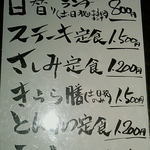 日替りランチ(土日祝除く) 800円
ステーキ定食 1.500円
さしみ定食 1.200円
きらら膳 1.500円
とんかつ定食 1.200円